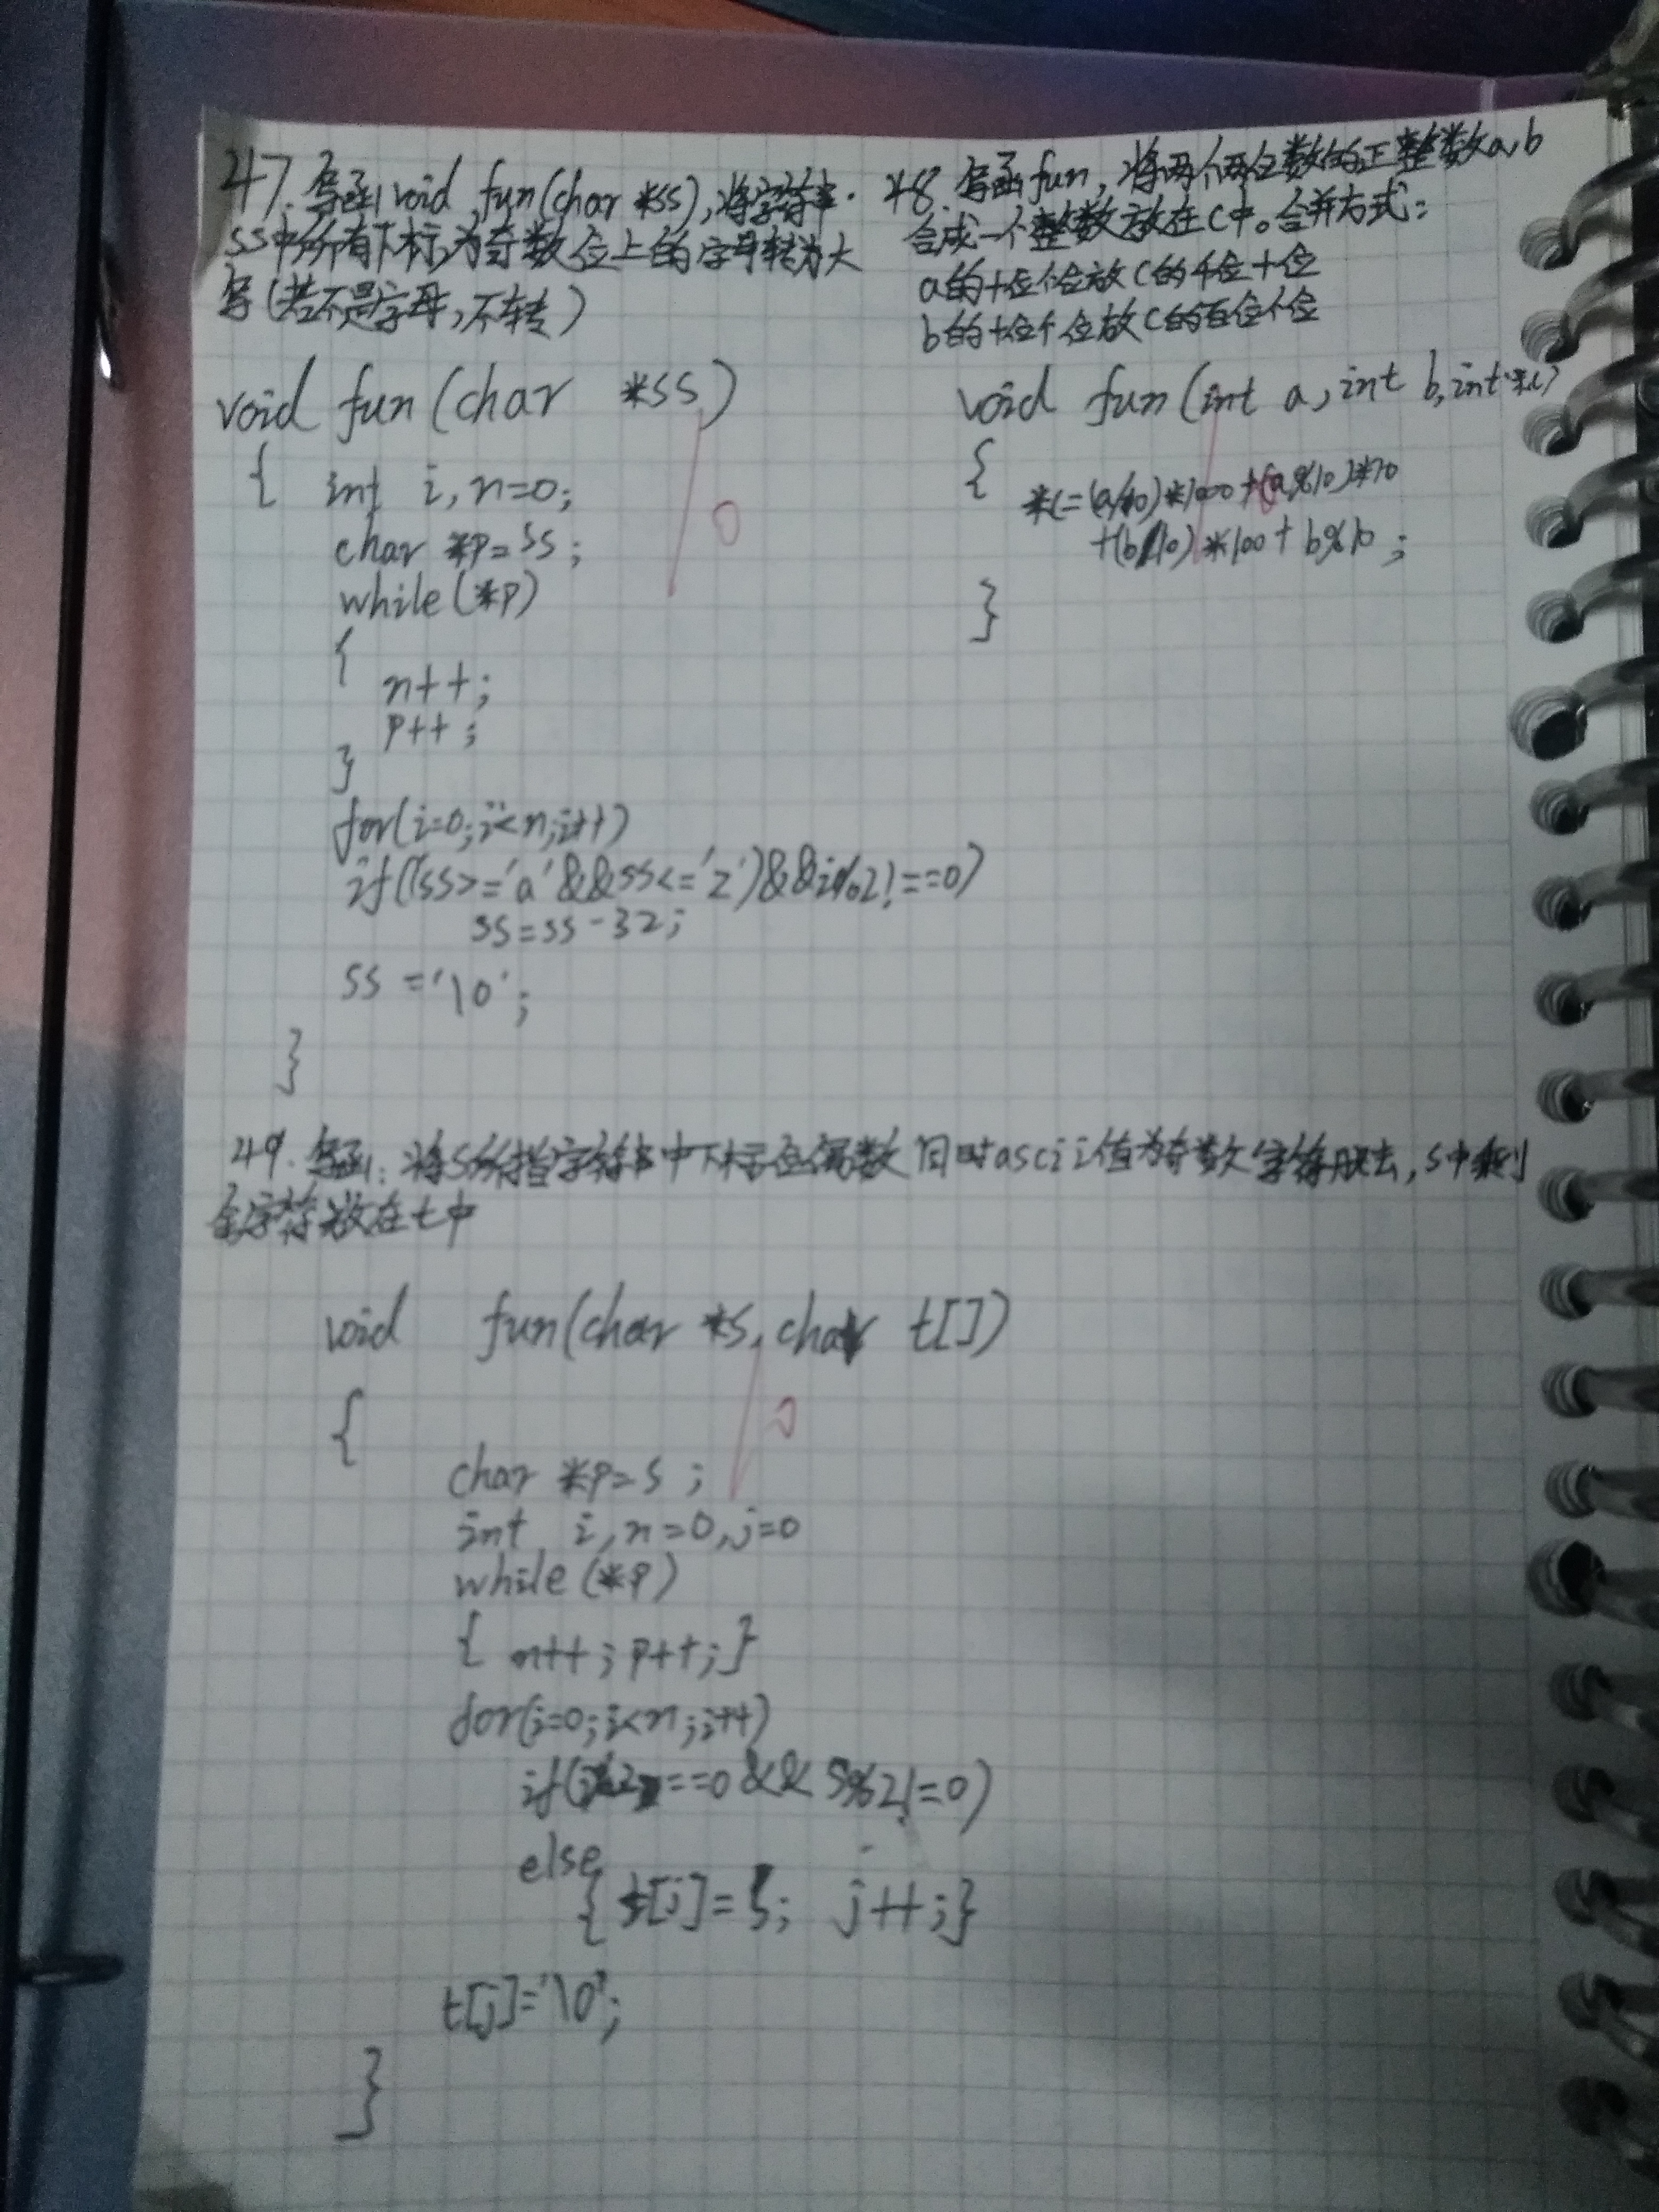 47. 写函 void fun(char *ss), 将字符串
ss中所有下标为奇数位上的字母转为大
写(若不是字母,不转)
void fun(char *ss)
{ int i,n=0;
char *p=ss;
while(*p)
{
n++;
p++;
}
for(i=0;i<n;i++)
if((ss>='a'&&ss<='z')&&i%2!==0)
ss=ss-32;
ss='\0';
}
0
48. 写函fun,将两个两位数的正整数a,b
合成一个整数放在C中。合并方式:
a的十位个位放C的千位十位
b的十位个位放C的百位个位
void fun(int a,int b,int *c)
{
*c=(a/10)*1000+(a%10)*10
+(b/10)*100+b%10;
}
49. 写函: 将S所指字符串中下标位偶数同时ascii值为奇数字符删去,S中剩
余字符放在t中
void fun(char *s,char t[])
{
0
char *p=s;
int i,n=0,j=0
while(*p)
{ n++;p++;}
for(i=0;i<n;i++)
if(i%2==0&&s%2!=0)
else
{ t[j]=s; j++;}
t[j]='\0';
}